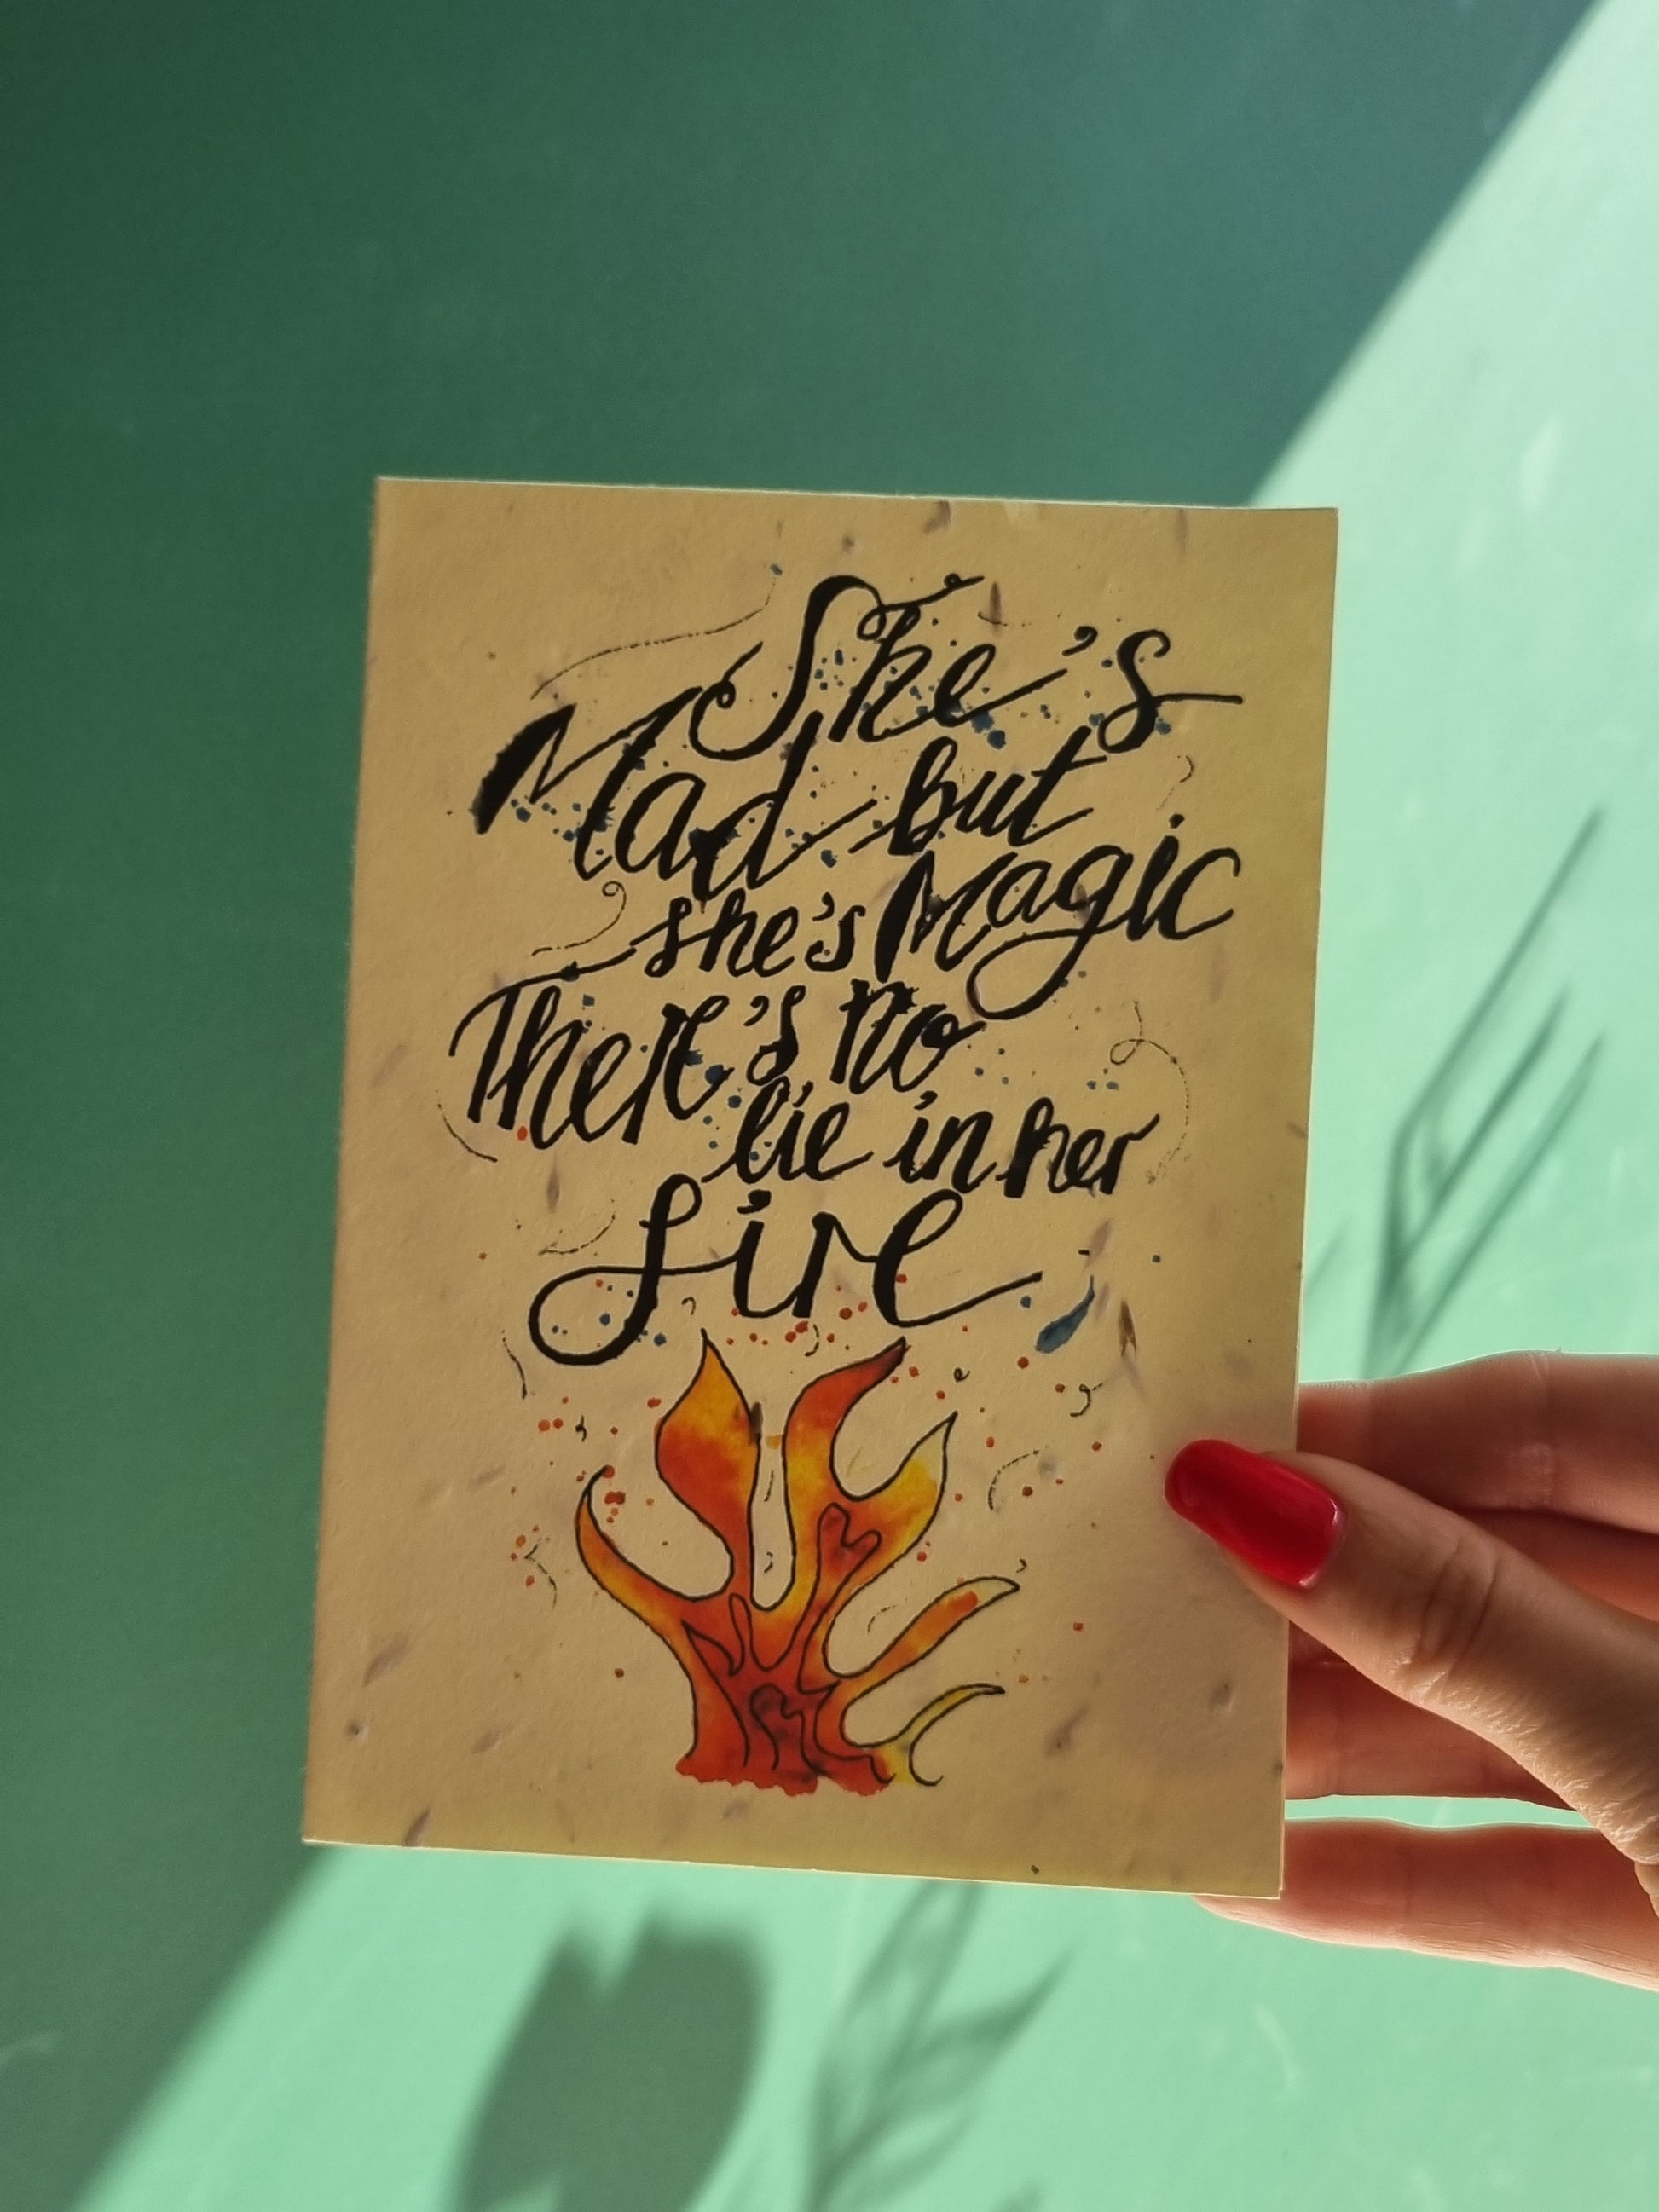 She's
Mad but
she's Magic
There's no
lie in her
fire